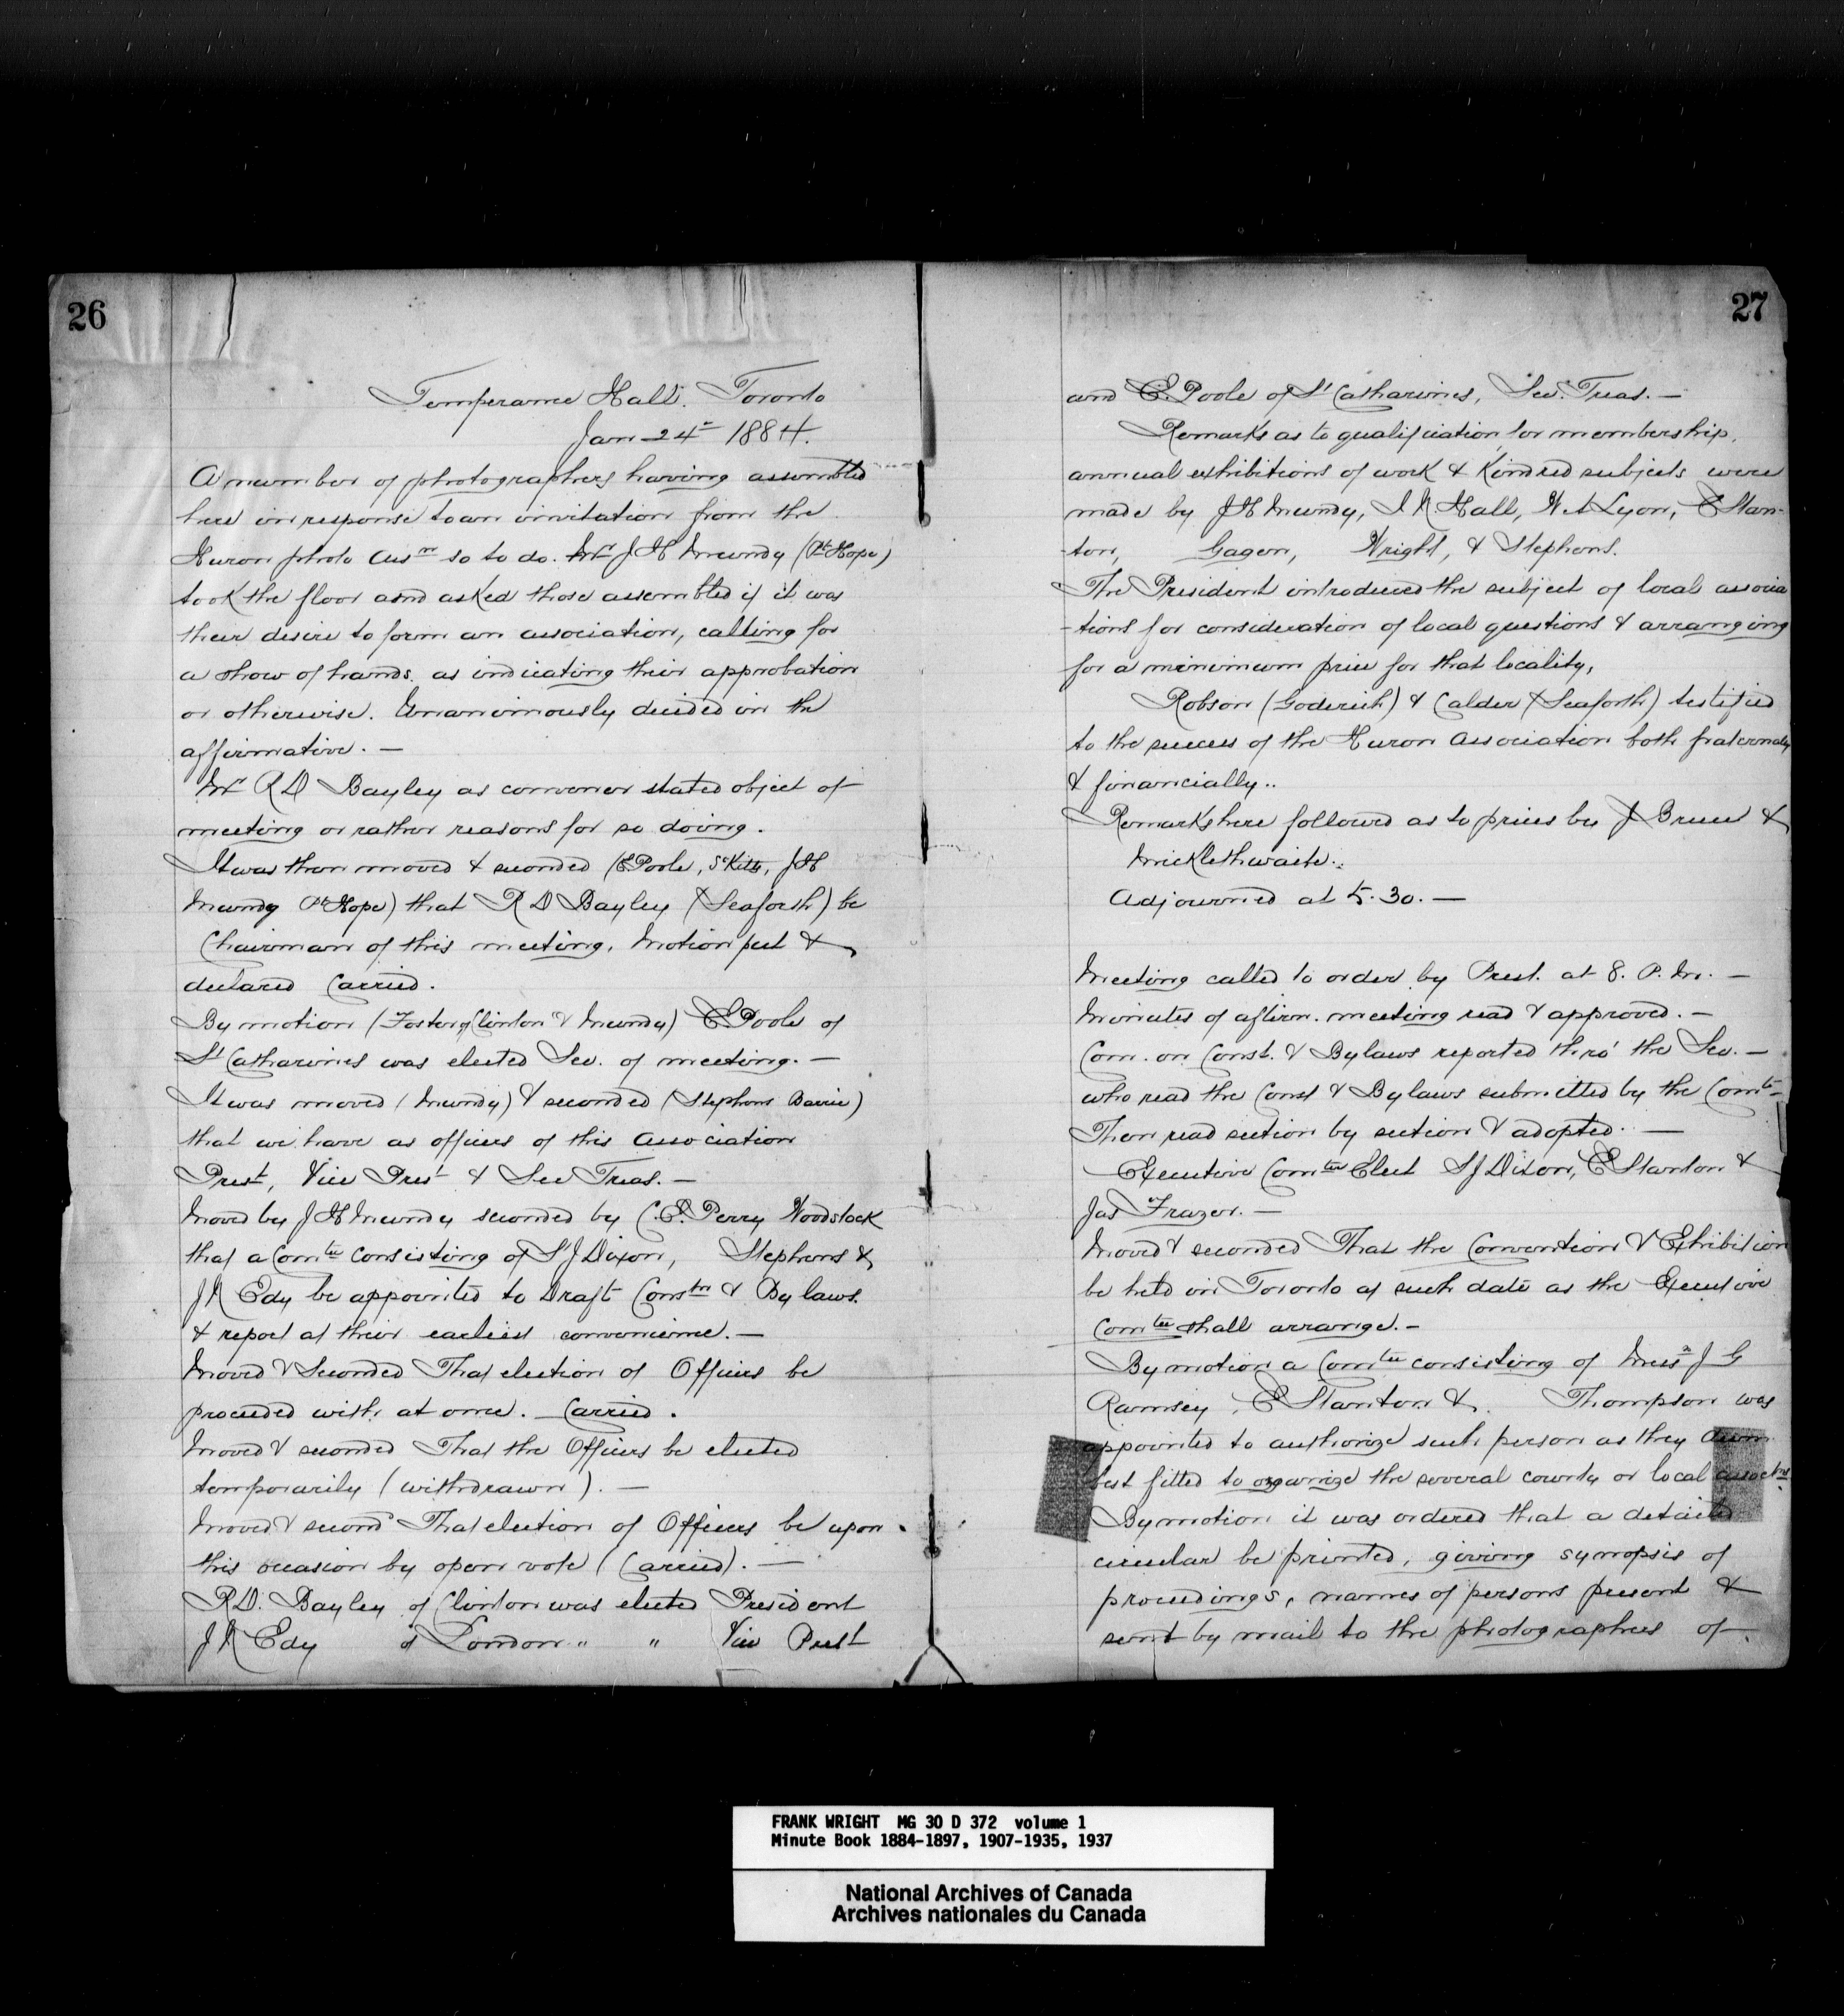 26
Temperance Hall. Toronto
Jan 24th 1884.
A number of photographers having assembled
here in response to an invitation from the
Huron photo Assn so to do. Mr J H Mundy (Pt Hope)
took the floor and asked those assembled if it was
their desire to form an association, calling for
a show of hands. as indicating their approbation
or otherwise. Unanimously decided in the
affirmative. —
Mr R D Bayley as convenor stated object of
meeting or rather reasons for so doing.
It was then moved & seconded (E Poole, St Kitts, J H
Mundy Pt Hope) that R D Bayley (Seaforth) be
Chairman of this meeting. Motion put &
declared Carried.
By motion (Foster of Clinton & Mundy) E Poole of
St Catharines was elected Sec. of meeting. —
It was moved (Mundy) & seconded (Stephens Barrie)
that we have as officers of this Association
Prest, Vice Prest & Sec Treas. —
Moved by J H Mundy seconded by C.E. Perry Woodstock
that a Comtee consisting of S J Dixon, Stephens &
J N Edy be appointed to Draft Constn & By laws.
& report at their earliest convenience. —
Moved & Seconded That election of Officers be
proceeded with, at once. Carried.
Moved & seconded That the Officers be elected
temporarily (withdrawn). —
Moved & second That election of Officers be upon
this occasion by open vote (Carried). —
R D. Bayley of Clinton was elected President
J N Edy of London " " Vice Prest
27
and E. Poole of St Catharines, Sec. Treas. —
Remarks as to qualification for membership,
annual exhibitions of work & Kindred subjects were
made by J H Mundy, I N Hall, W A Lyon, E Stan-
-ton, Gagen, Wright, & Stephens.
The President introduced the subject of local associa
-tions for consideration of local questions & arranging
for a minimum price for that locality,
Robson (Goderich) & Calder (Seaforth) testified
to the success of the Huron Association both fraternally
& financially..
Remarks here followed as to prices by J Bruce &
Micklethwaite.
Adjourned at 5.30. —
Meeting called to order by Prest. at 8. P.M. —
Minutes of aftern. meeting read & approved. —
Com. on Const. & Bylaws reported thro' the Sec. —
who read the Const & Bylaws submitted by the Comte
Then read section by section & adopted. —
Executive Comtee Elect S J Dixon, E Stanton &
Jas Frazer. —
Moved & seconded That the Convention & Exhibition
be held in Toronto at such date as the Executive
Comtee shall arrange. —
By motion a Comtee consisting of Messrs J G
Ramsey, E Stanton & Thompson was
appointed to authorize such person as they deem
best fitted to organize the several county or local assoctns.
By motion it was ordered that a detailed
circular be printed, giving synopsis of
proceedings, names of persons present &
sent by mail to the photographers of
FRANK WRIGHT MG 30 D 372 volume 1
Minute Book 1884-1897, 1907-1935, 1937
National Archives of Canada
Archives nationales du Canada